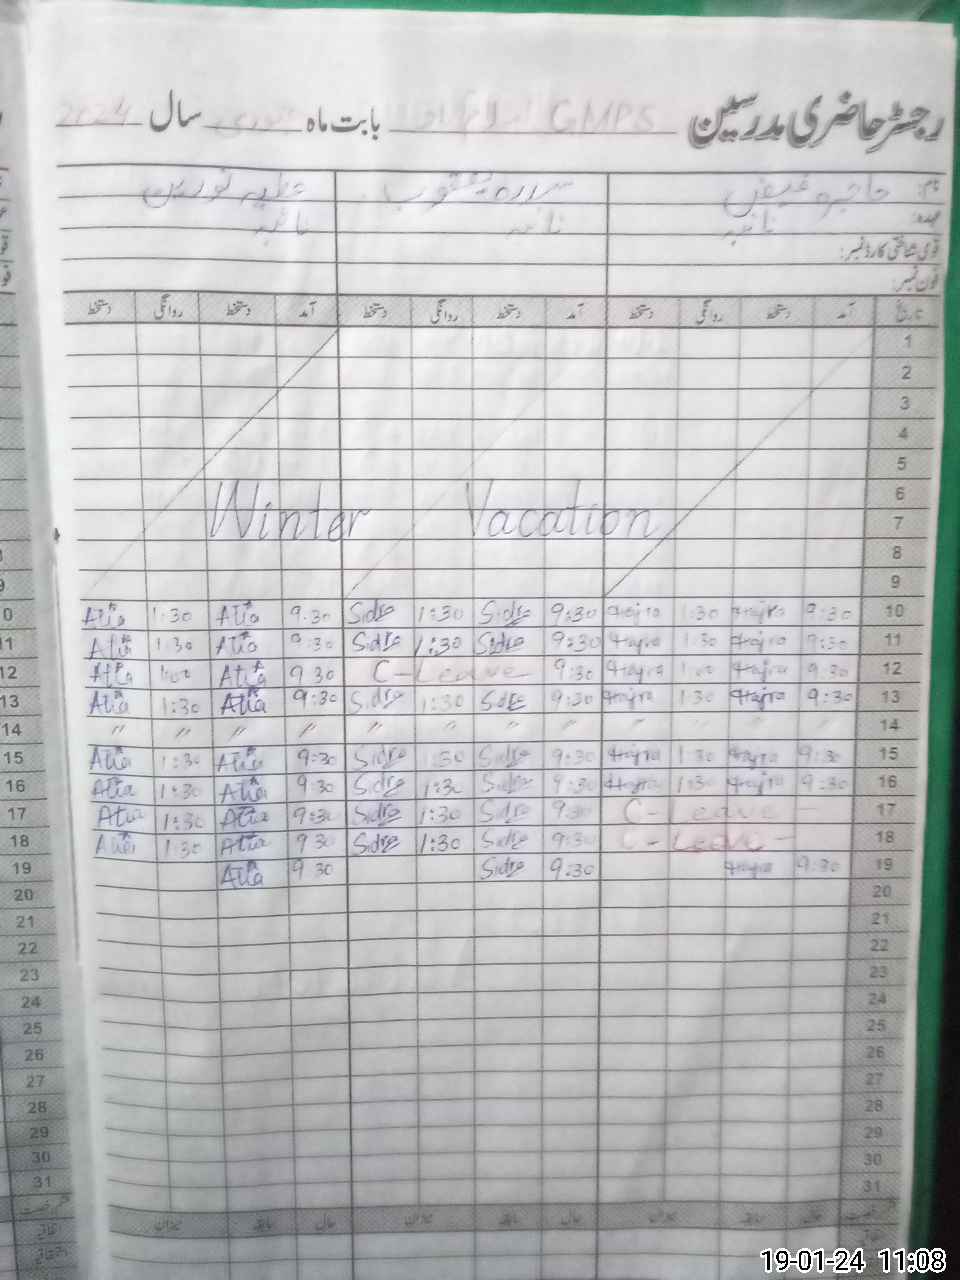 رجسٹر حاضری مدرسین GMPS بابت ماہ جنوری سال 2024
نام: حاجرہ فیض سدرہ یعقوب عطیہ نورین
عہدہ: نائبہ نائبہ نائبہ
قومی شناختی کارڈ نمبر:
فون نمبر:
تاریخ آمد دستخط روانگی دستخط آمد دستخط روانگی دستخط آمد دستخط روانگی دستخط
1
2
3
4
5
6
Winter Vacation 7
8
9
Atia 1:30 Atia 9.30 Sidra 1:30 Sidra 9:30 Hajra 1:30 Hajra 9:30 10
Atia 1:30 Atia 9:30 Sidra 1:30 Sidra 9:30 Hajra 1:30 Hajra 9:30 11
Atia 1:00 Atia 9 30 C-Leave 9:30 Hajra 1:00 Hajra 9:30 12
Atia 1:30 Atia 9:30 Sidra 1:30 Sidra 9:30 Hajra 1:30 Hajra 9:30 13
" " " " " " " " " " " " 14
Atia 1:30 Atia 9:30 Sidra 1:30 Sidra 9:30 Hajra 1:30 Hajra 9:30 15
Atia 1:30 Atia 9:30 Sidra 1:30 Sidra 9:30 Hajra 1:30 Hajra 9:30 16
Atia 1:30 Atia 9:30 Sidra 1:30 Sidra 9:30 C-Leave 17
Atia 1:30 Atia 9 30 Sidra 1:30 Sidra 9:30 C-Leave 18
Atia 9 30 Sidra 9:30 Hajra 9:30 19
20
21
22
23
24
25
26
27
28
29
30
31
حال سابقہ میزان حال سابقہ میزان حال سابقہ میزان
اتفاقیہ
19-01-24 11:08